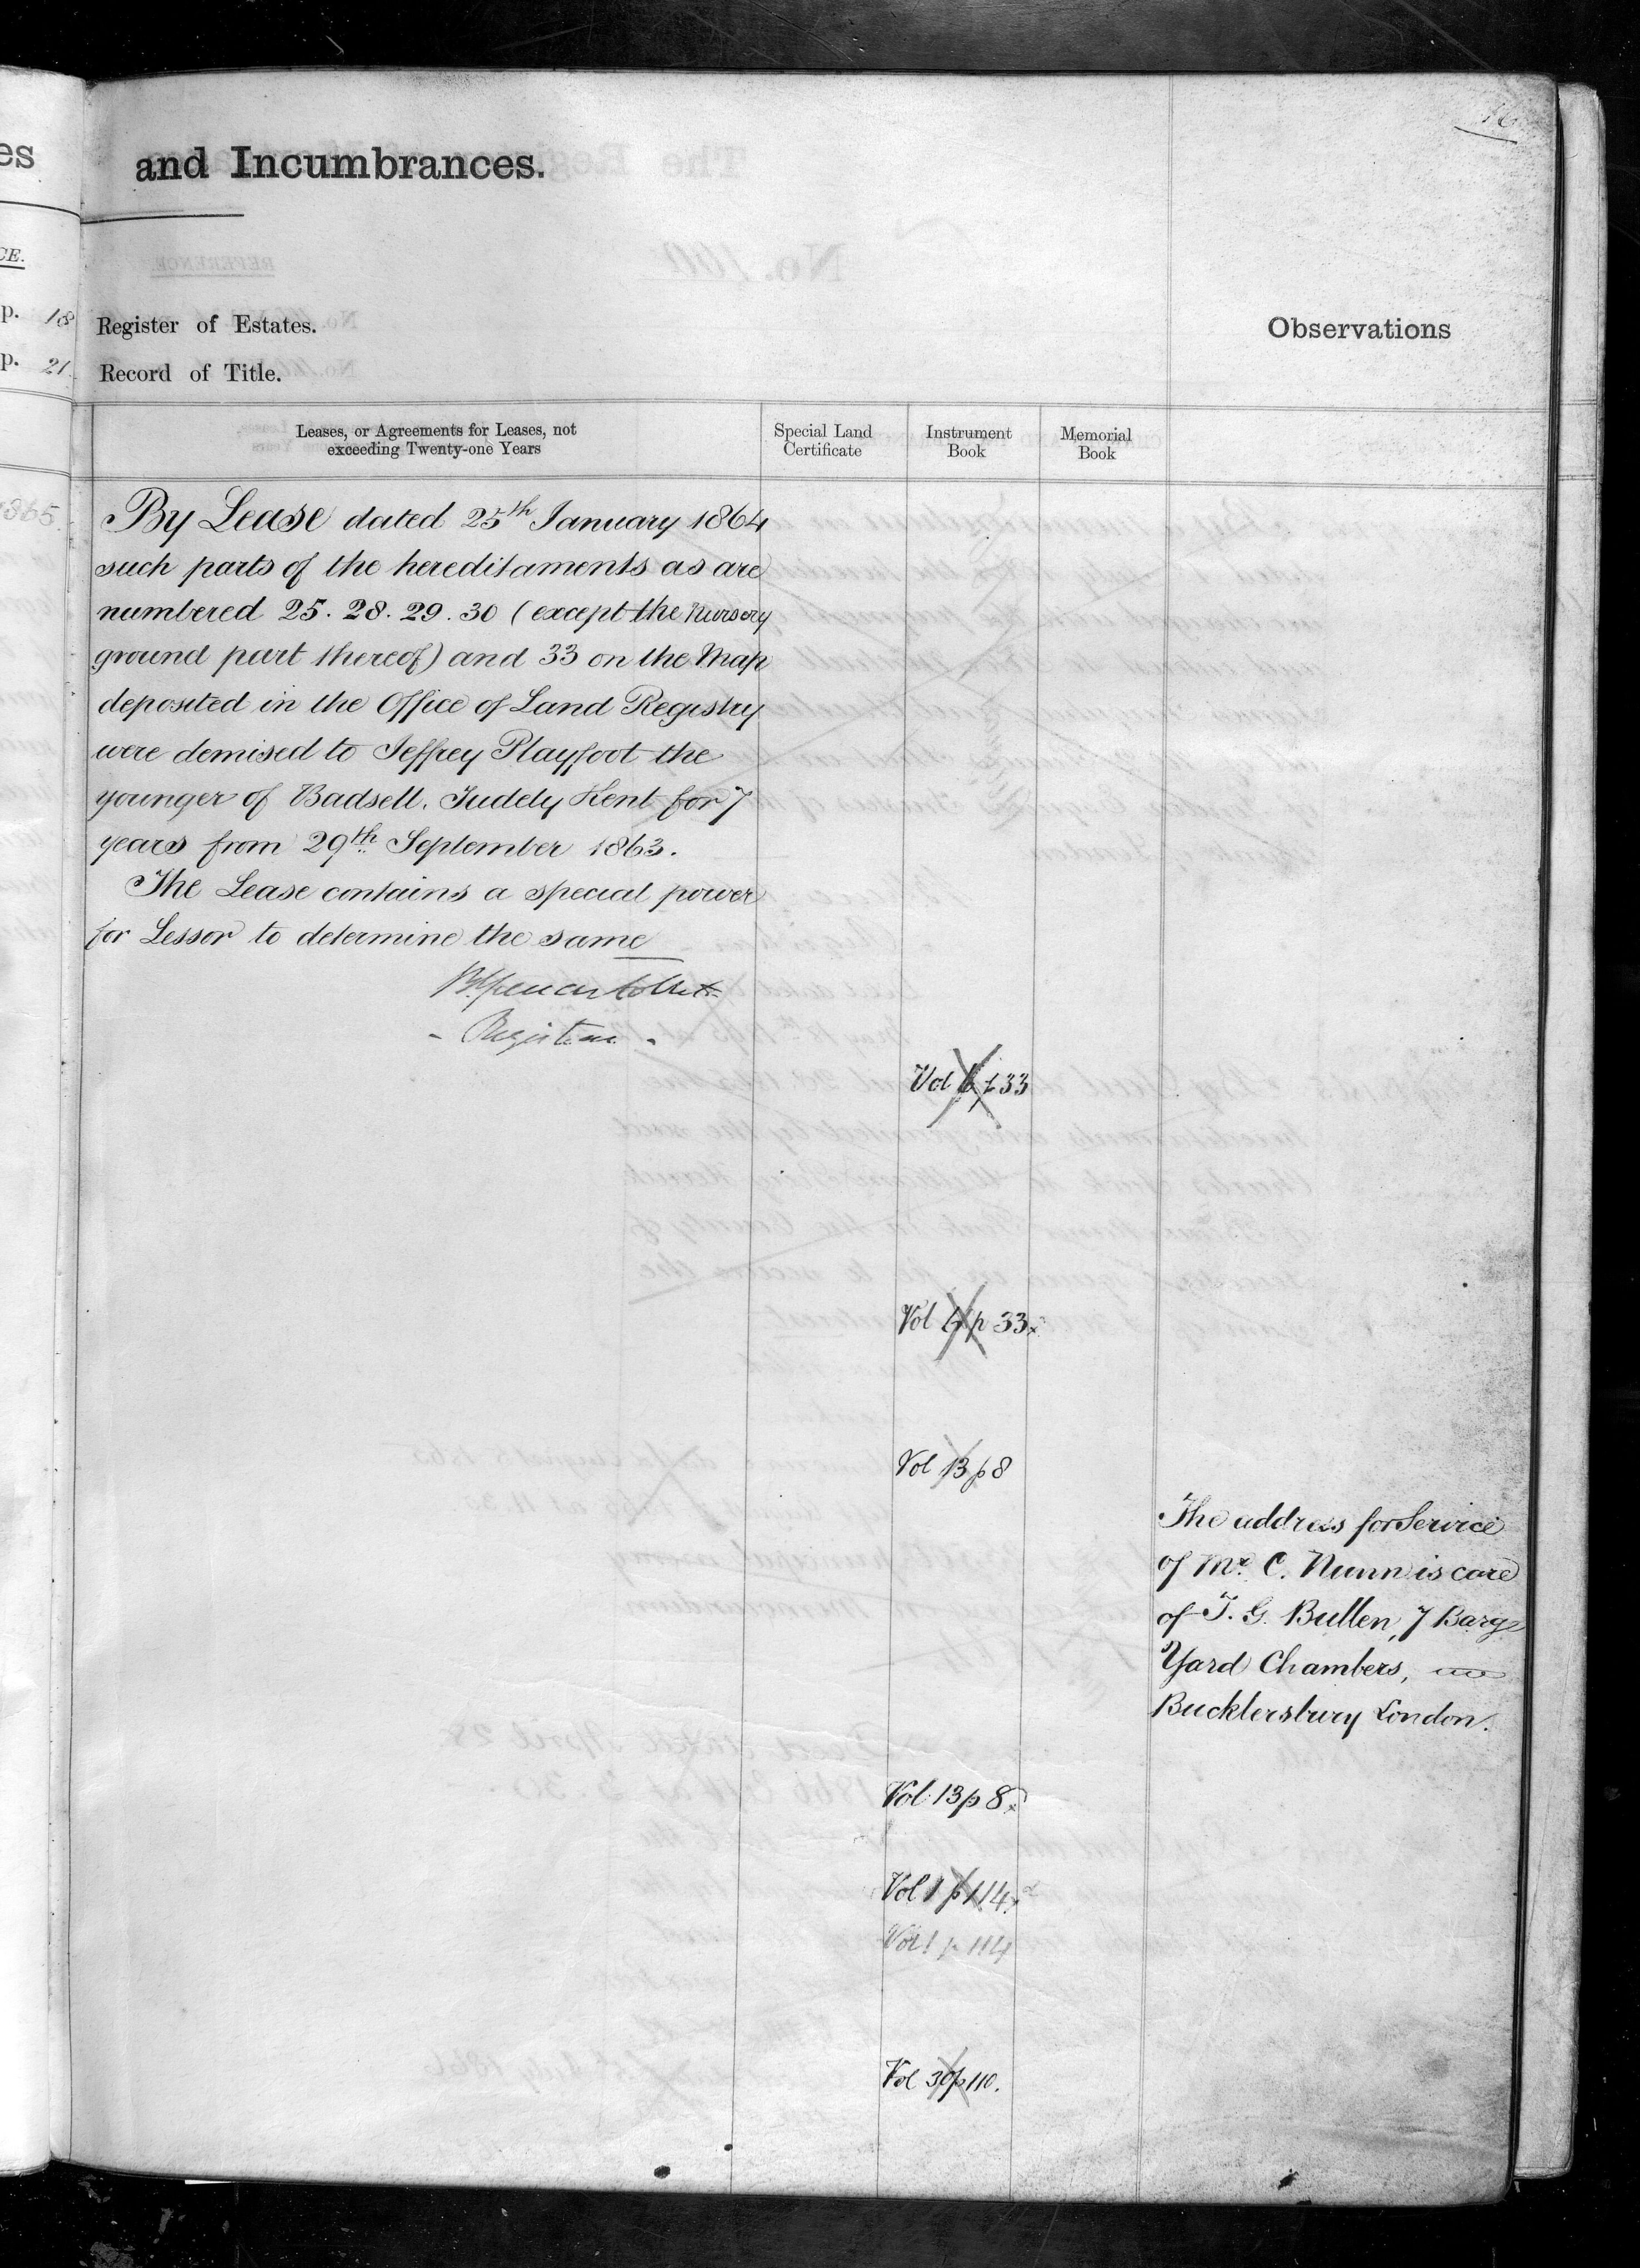 es
and Incumbrances.
CE.
p. 18
Register of Estates.
Observations
p. 21
Record of Title.
Leases, or Agreements for Leases, not
exceeding Twenty-one Years
Special Land
Certificate
Instrument
Book
Memorial
Book
By Lease dated 25th January 1864
such parts of the hereditaments as are
numbered 25. 28. 29. 30 (except the Nursery
ground part thereof) and 33 on the Map
deposited in the Office of Land Registry
were demised to Jeffrey Playfoot the
younger of Badsell. Tudely Kent for 7
years from 29th September 1863.
The Lease contains a special power
for Lessor to determine the same
Registrar
Vol 6 p 33
Vol 6 p 33
Vol 13 p 8
The address for Service
of Mr. C. Nunn is care
of T. G. Bullen, 7 Barge
Yard Chambers,
Bucklersbury London.
Vol 13 p 8
Vol 1 p 114
Vol 1 p 114
Vol 30 p 110.